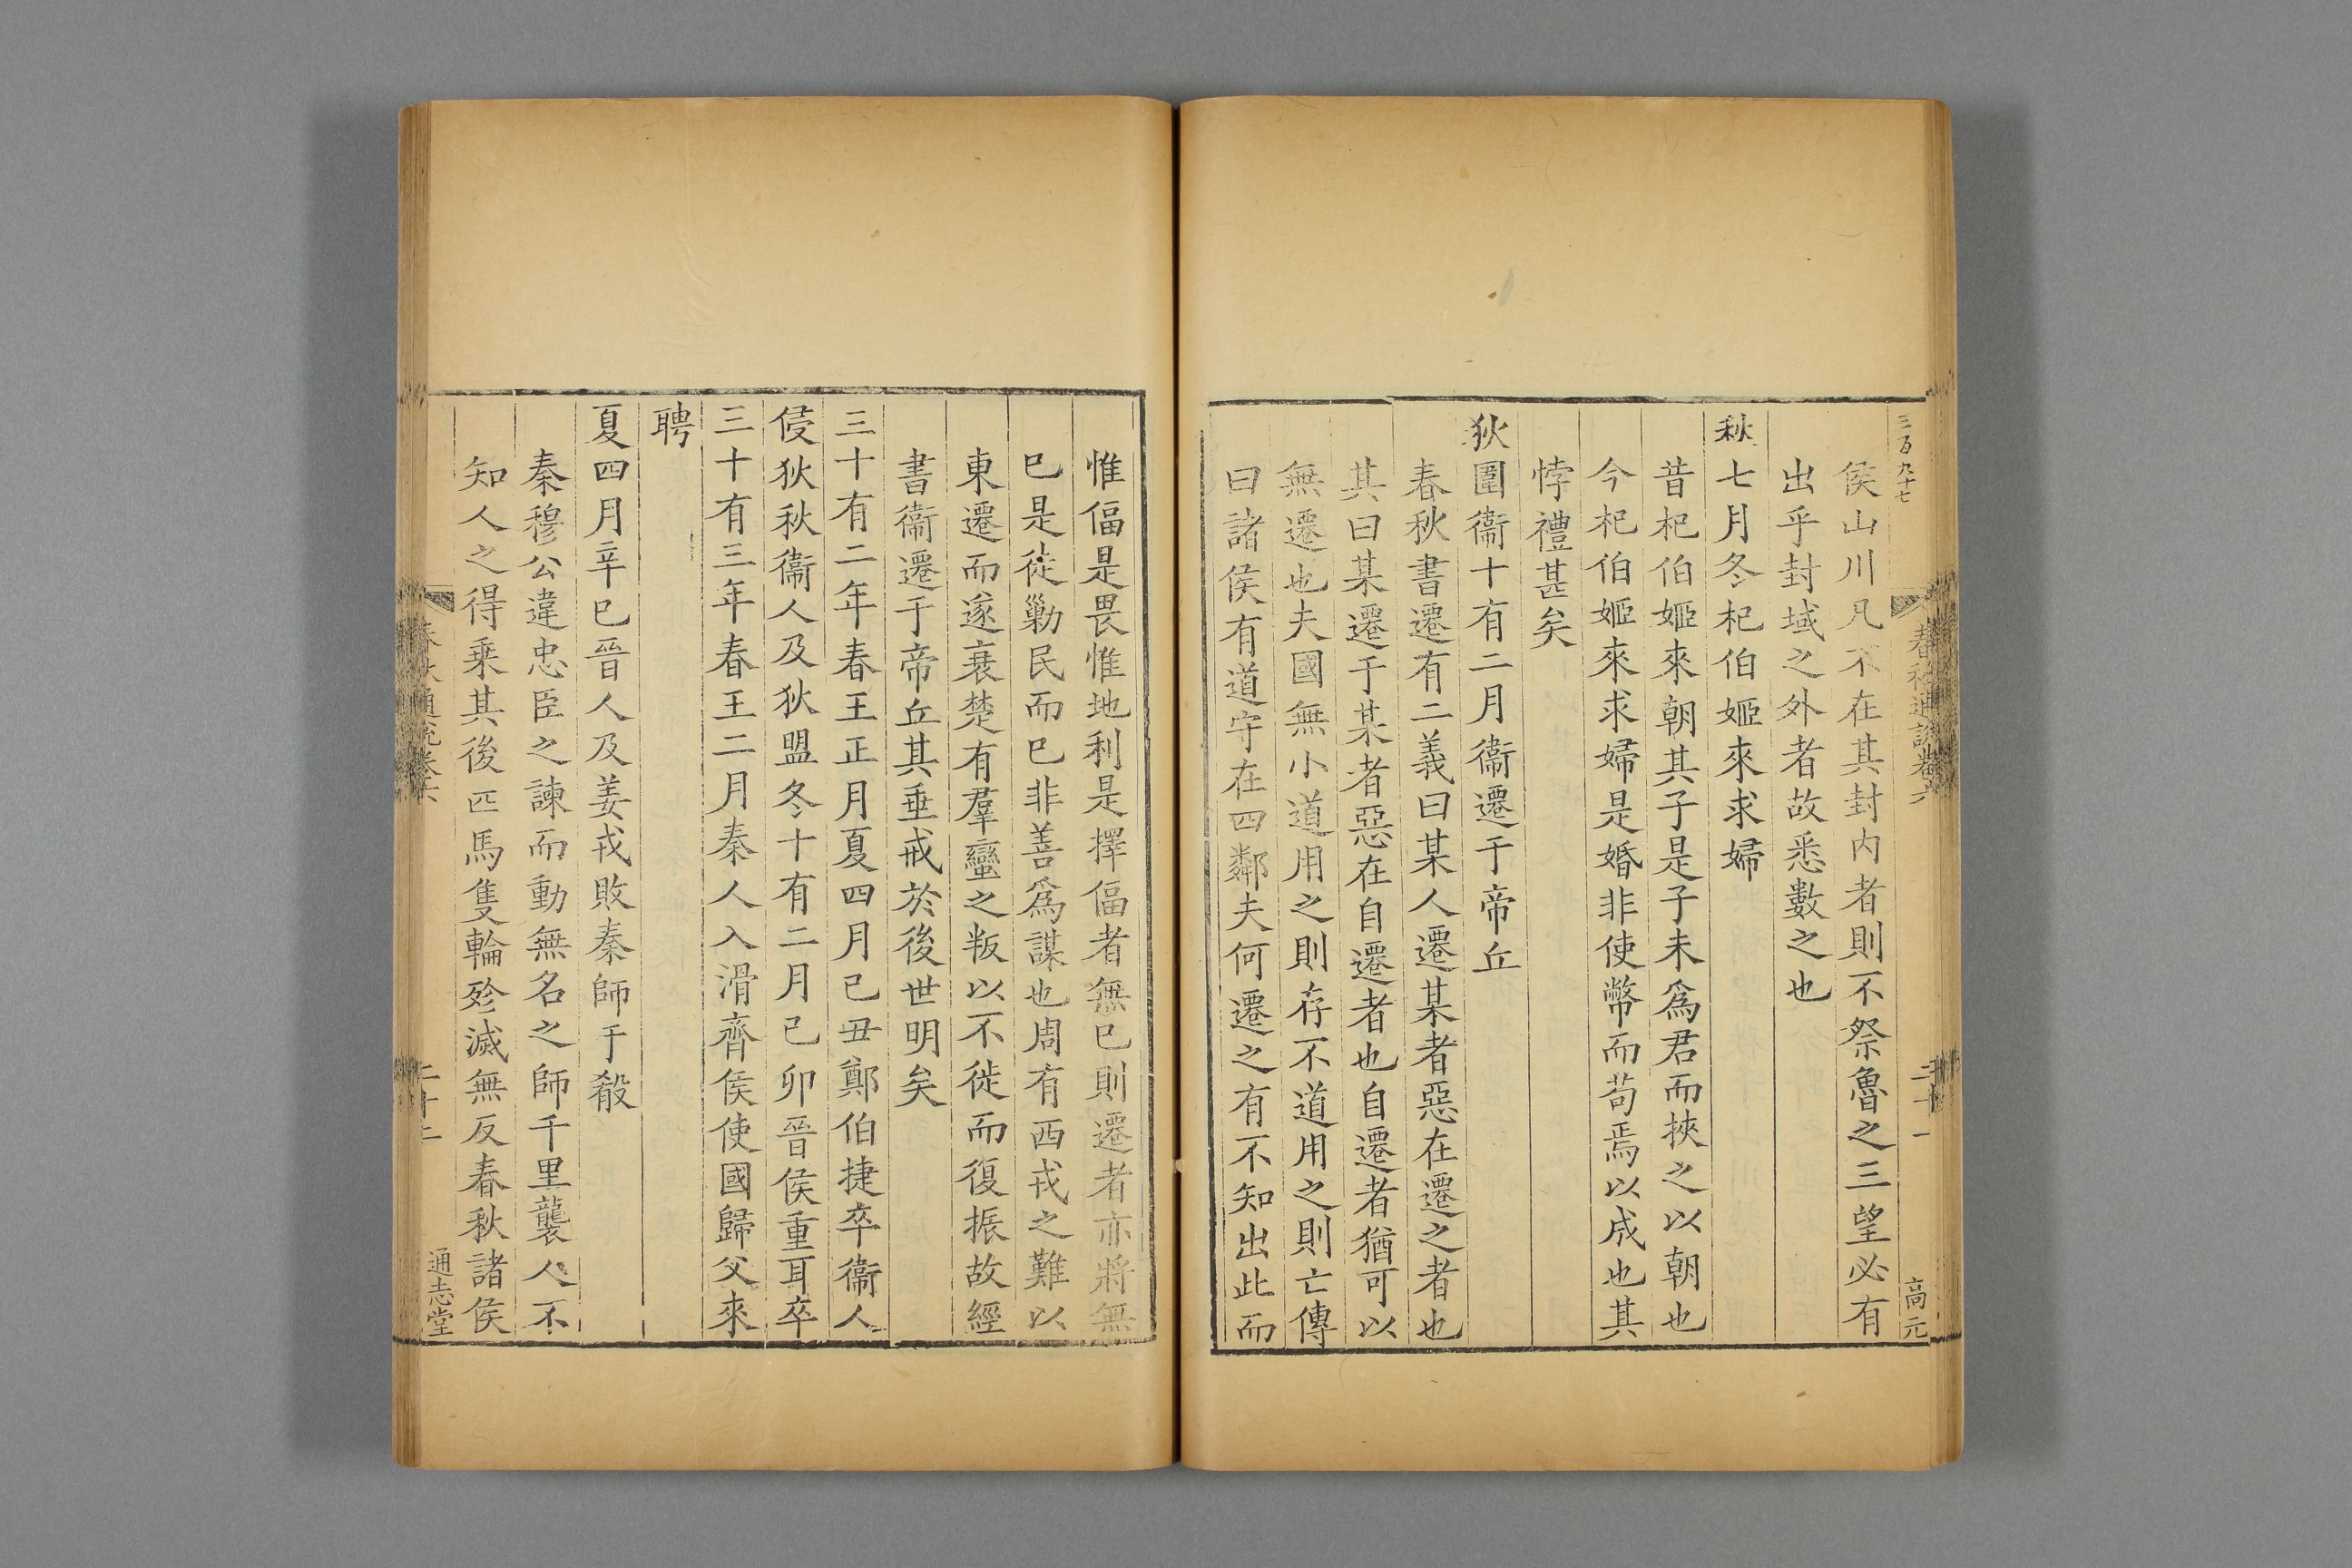 三百九十七
春秋通說卷六
二十一
高元
侯山川凡不在其封內者則不祭魯之三望必有
出乎封域之外者故悉數之也
秋七月冬杞伯姬來求婦
昔杞伯姬來朝其子是子未爲君而挾之以朝也
今杞伯姬來求婦是婚非使幣而苟焉以成也其
悖禮甚矣
狄圍衞十有二月衞遷于帝丘
春秋書遷有二義曰某人遷某者惡在遷之者也
其曰某遷于某者惡在自遷者也自遷者猶可以
無遷也夫國無小道用之則存不道用之則亡傳
曰諸侯有道守在四鄰夫何遷之有不知出此而
惟偪是畏惟地利是擇偪者無已則遷者亦將無
已是徒勦民而已非善爲謀也周有西戎之難以
東遷而遂衰楚有羣蠻之叛以不徙而復振故經
書衞遷于帝丘其垂戒於後世明矣
三十有二年春王正月夏四月己丑鄭伯捷卒衞人
侵狄秋衞人及狄盟冬十有二月己卯晉侯重耳卒
三十有三年春王二月秦人入滑齊侯使國歸父來
聘
夏四月辛巳晉人及姜戎敗秦師于殽
秦穆公違忠臣之諫而動無名之師千里襲人不
知人之得乘其後匹馬隻輪殄滅無反春秋諸侯
春秋通說卷六
二十二
通志堂